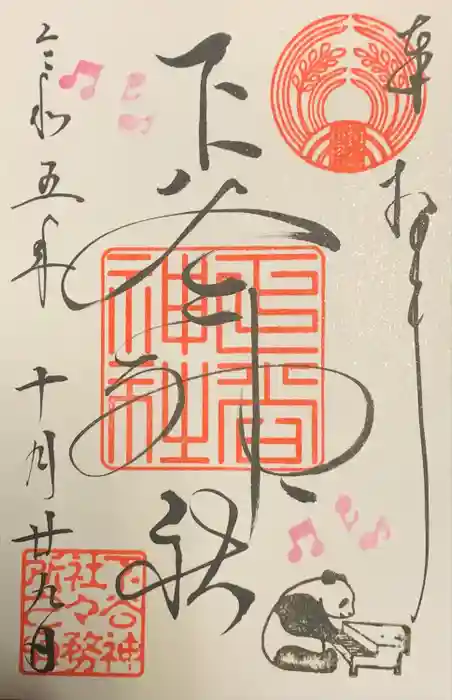 奉拝
下谷神社
下谷
神社
令和五年十月廿九日
下谷神
社々務
所之印